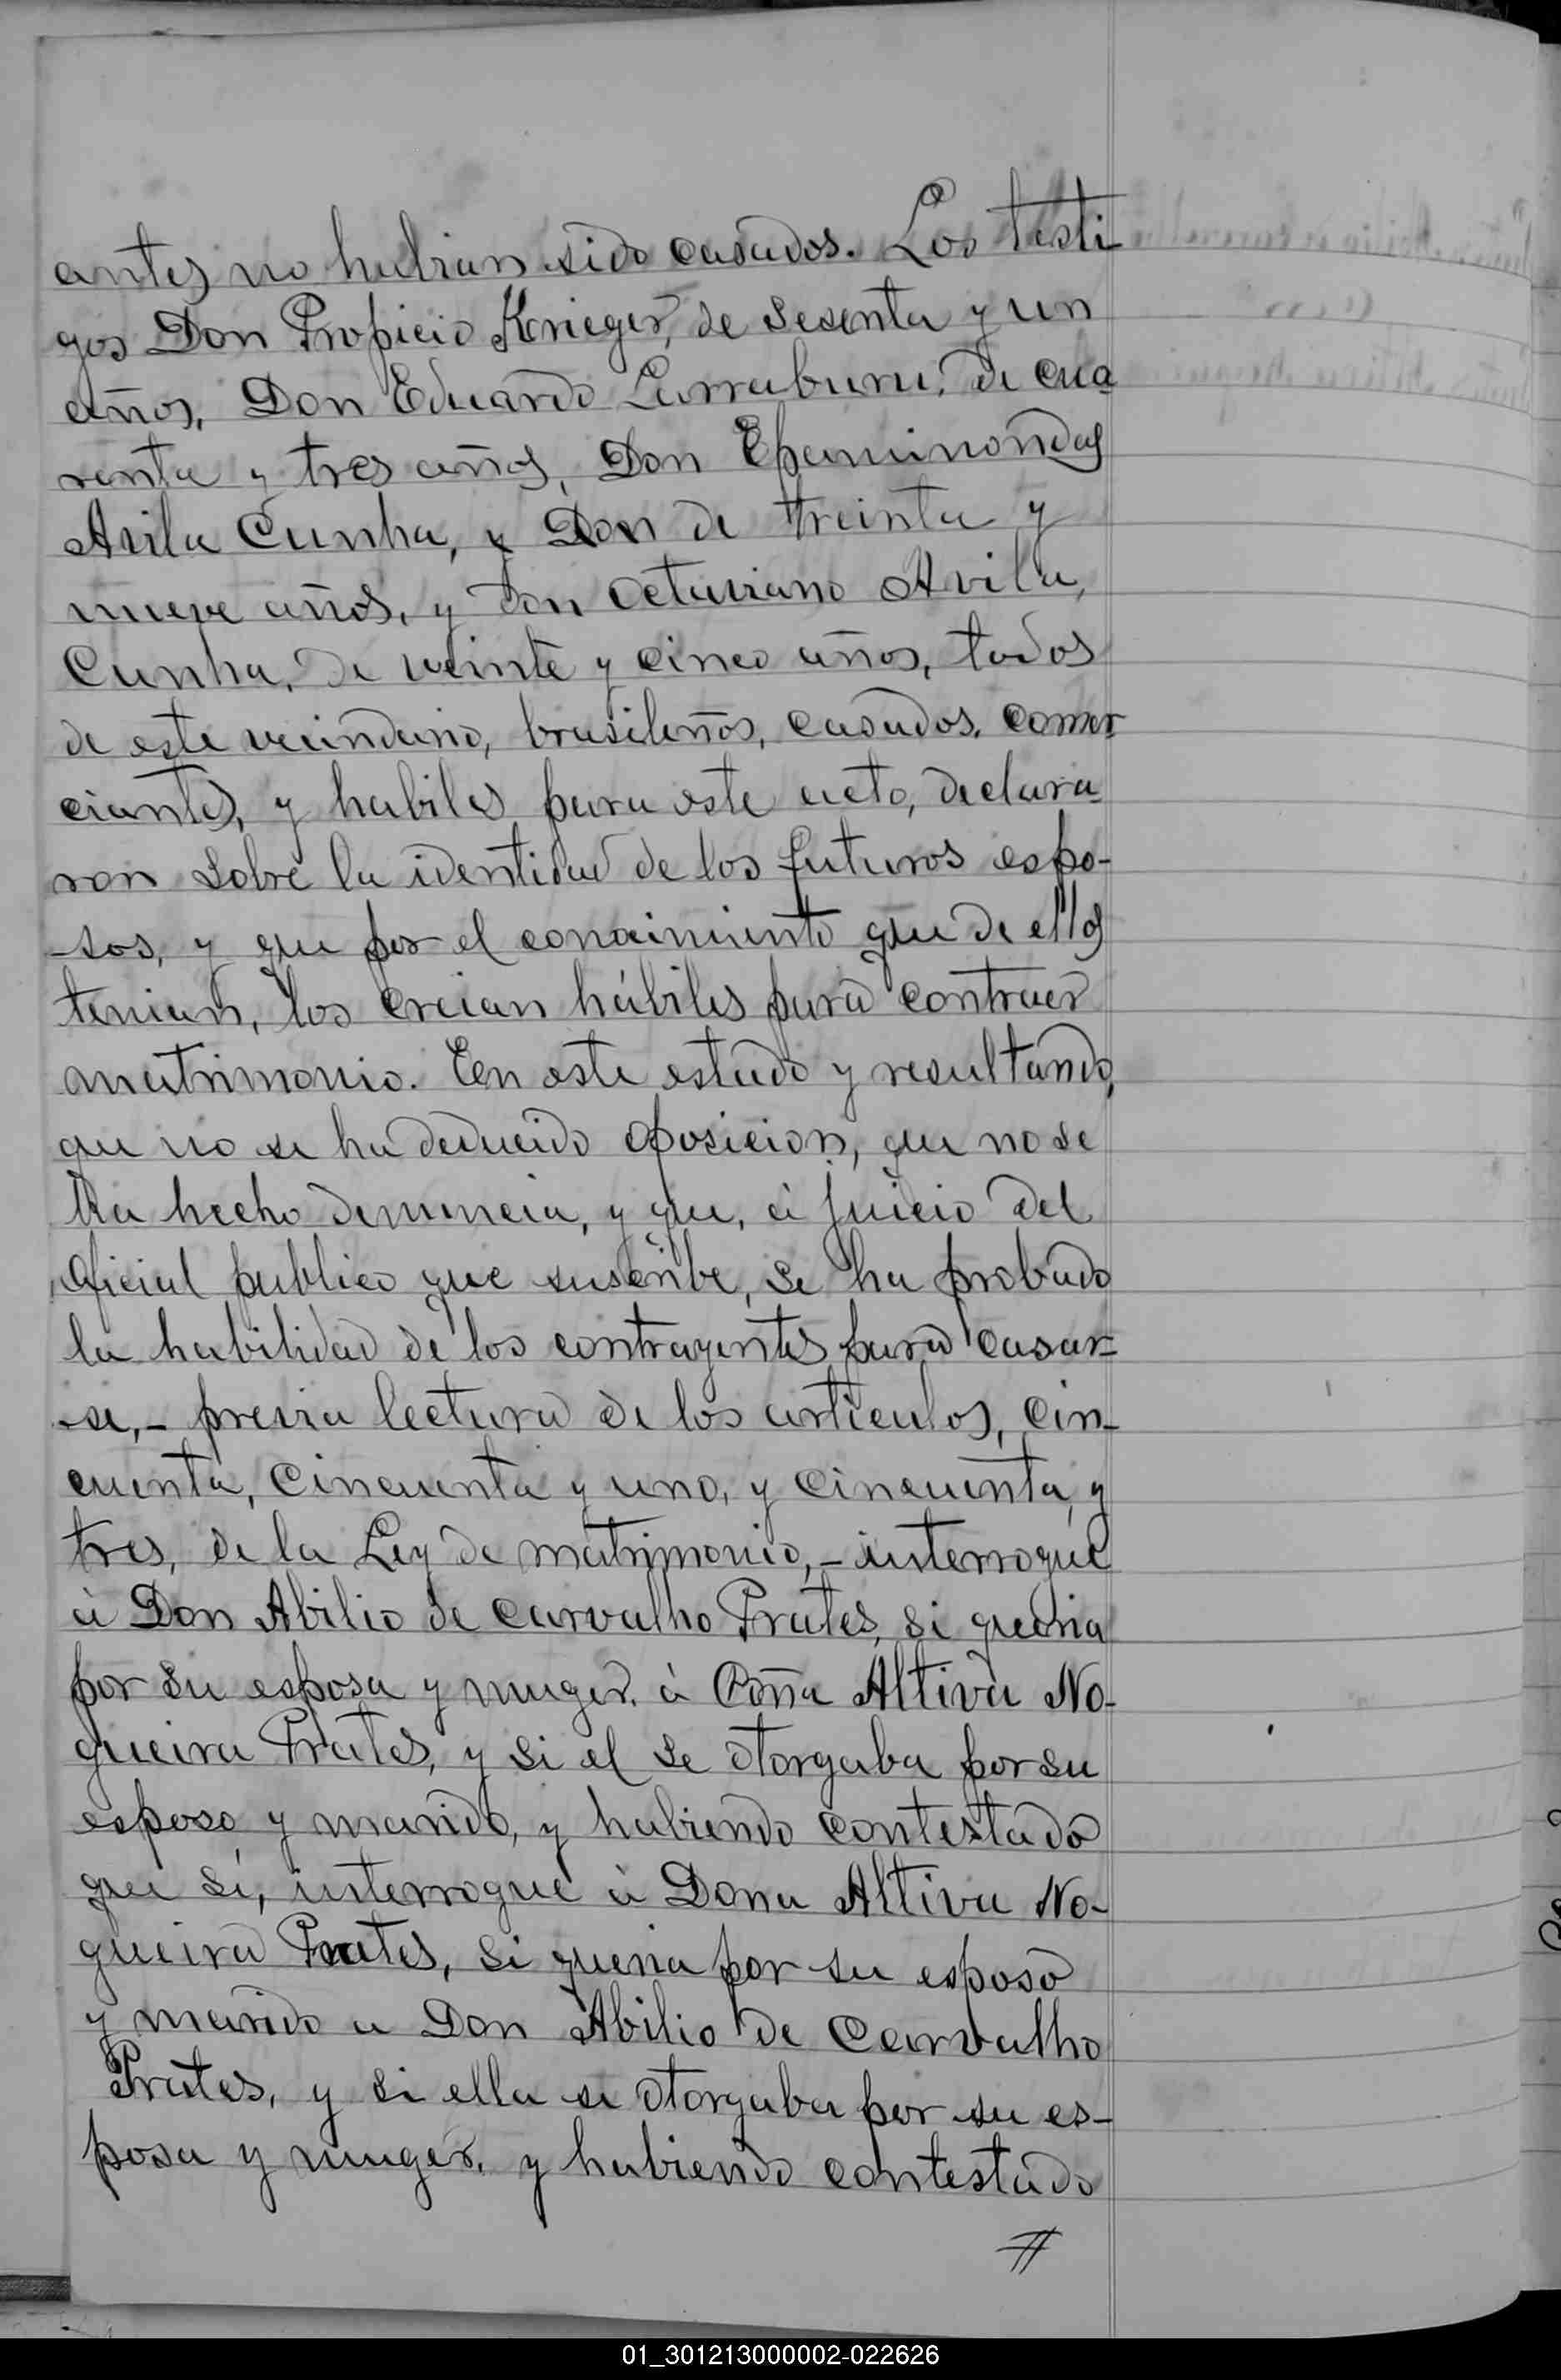 antes no hubian sido casados. Los testi-
gos Don Propicio Krieger, de sesenta y un
años, Don Eduardo Larraburu, de cua-
renta y tres años, Don Epaminondas
Avila Cunha, y Don de treinta y
nueve años, y Don Octaviano Avila,
Cunha, de veinte y cinco años, todos
de este vecindario, brasileños, casados, comer-
ciantes, y habiles para este acto, declara-
ron sobre la identidad de los futuros espo-
-sos, y que por el conocimiento que de ellos
tenian, los creian hábiles para contraer
matrimonio. En este estado y resultando,
que no se ha deducido oposicion, que no se
ha hecho denuncia, y que, á juicio del
oficial publico que suscribe, se ha probado
la habilidad de los contrayentes para casar-
-se,- previa lectura de los articulos, cin-
cuenta, cincuenta y uno, y cincuenta y
tres, de la Ley de matrimonio,- interrogué
á Don Abilio de Carvalho Prates, si queria
por su esposa y muger, á Doña Altiva No-
gueira Prates, y si el se otorgaba por su
esposo y marido, y habiendo contestado
que sí, interrogué á Dona Altiva No-
gueira Prates, si queria por su esposo
y marido a Don Abilio de Carvalho
Prates, y si ella se otorgaba por su es-
posa y muger, y habiendo contestado
#
01_301213000002-022626